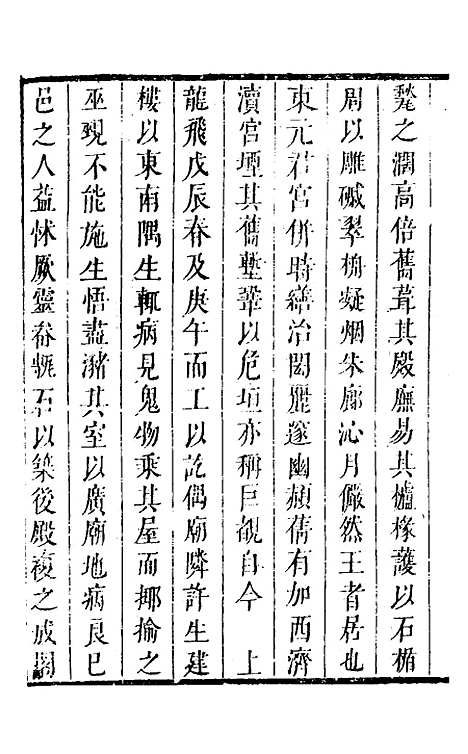 甃之濶高倍舊葺其殿廡易其櫨椽護以石楯
周以雕磩翠桷凝烟朱廊沁月儼然王者居也
東元君宮併時繕治閎麗邃幽頯舊有加西濟
瀆宮堙其舊塹鞏以危垣亦稱巨觀自今　上
龍飛戊辰春及庚午而工以訖偶廟隣許生建
樓以東南隅生輒病見鬼物乘其屋而揶揄之
巫覡不能施生悟盡瀦其室以廣廟地病良已
邑之人益怵厥靈舂甃石以築後殿複之成閣